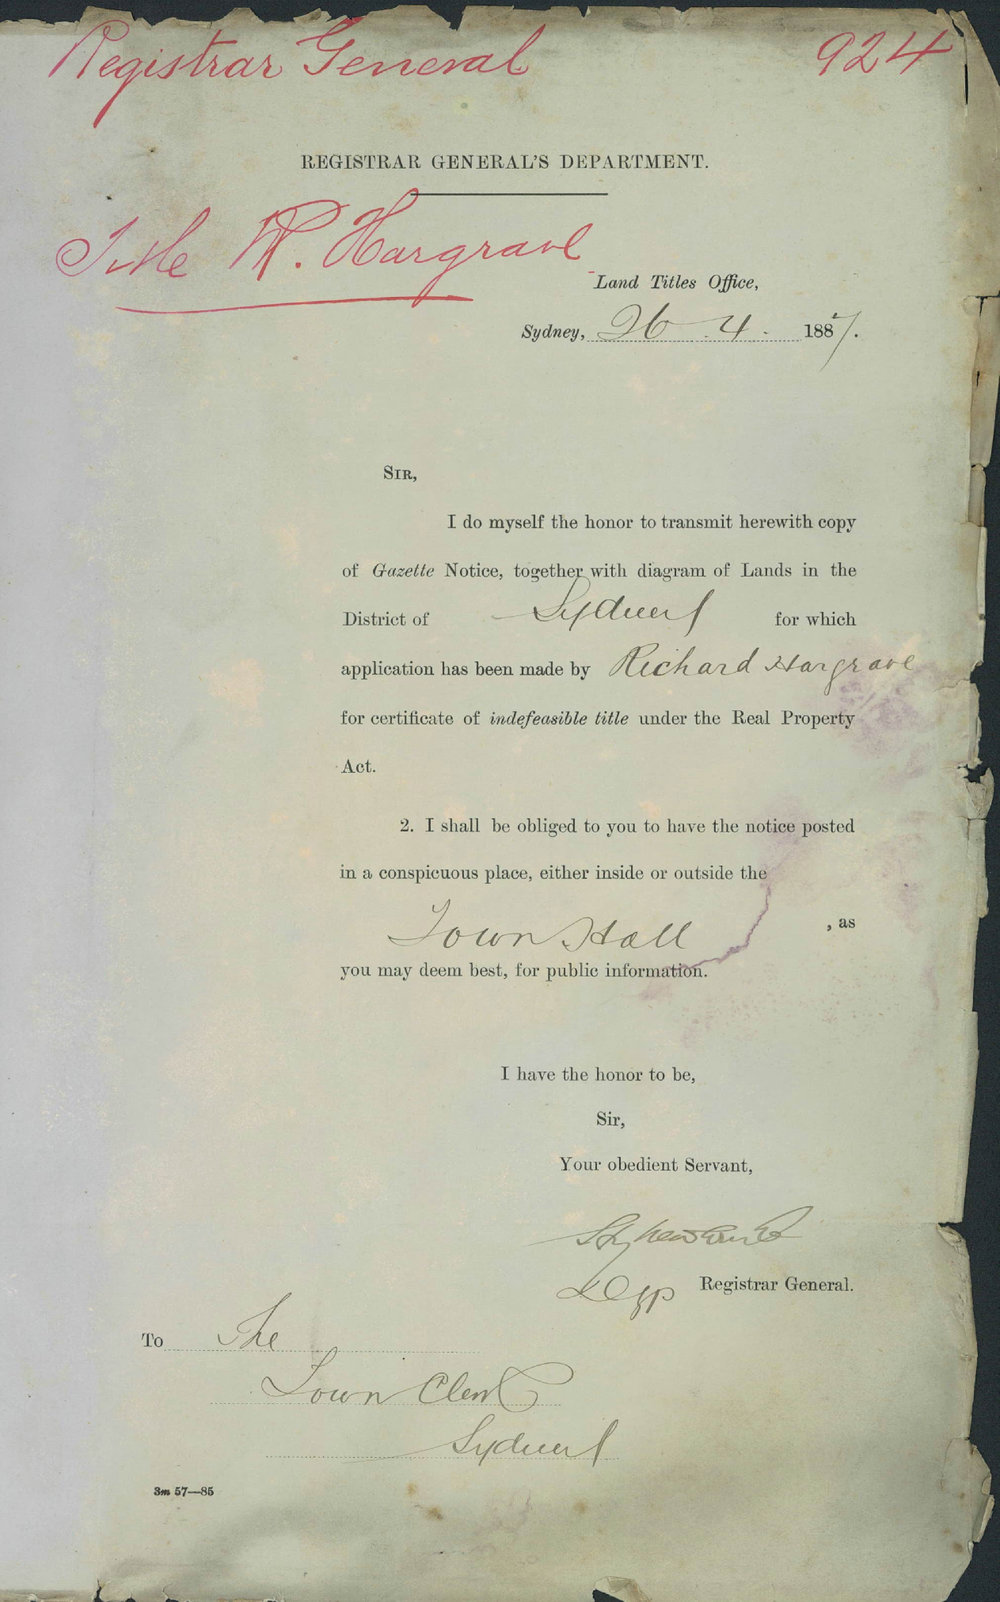 Registrar General 924
REGISTRAR GENERAL'S DEPARTMENT.
Title R. Hargrave
Land Titles Office,
Sydney, 26 . 4 . 1887.
SIR,
I do myself the honor to transmit herewith copy
of Gazette Notice, together with diagram of Lands in the
District of Sydney for which
application has been made by Richard Hargrave
for certificate of indefeasible title under the Real Property
Act.
2. I shall be obliged to you to have the notice posted
in a conspicuous place, either inside or outside the
Town Hall , as
you may deem best, for public information.
I have the honor to be,
Sir,
Your obedient Servant,
Registrar General.
To The
Town Clerk
Sydney
3m 57—85